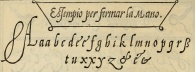 Essempio per fermar la Mano.
A a a b c d e e f g h i k l m n o p q r s ß
t u x x y z & &